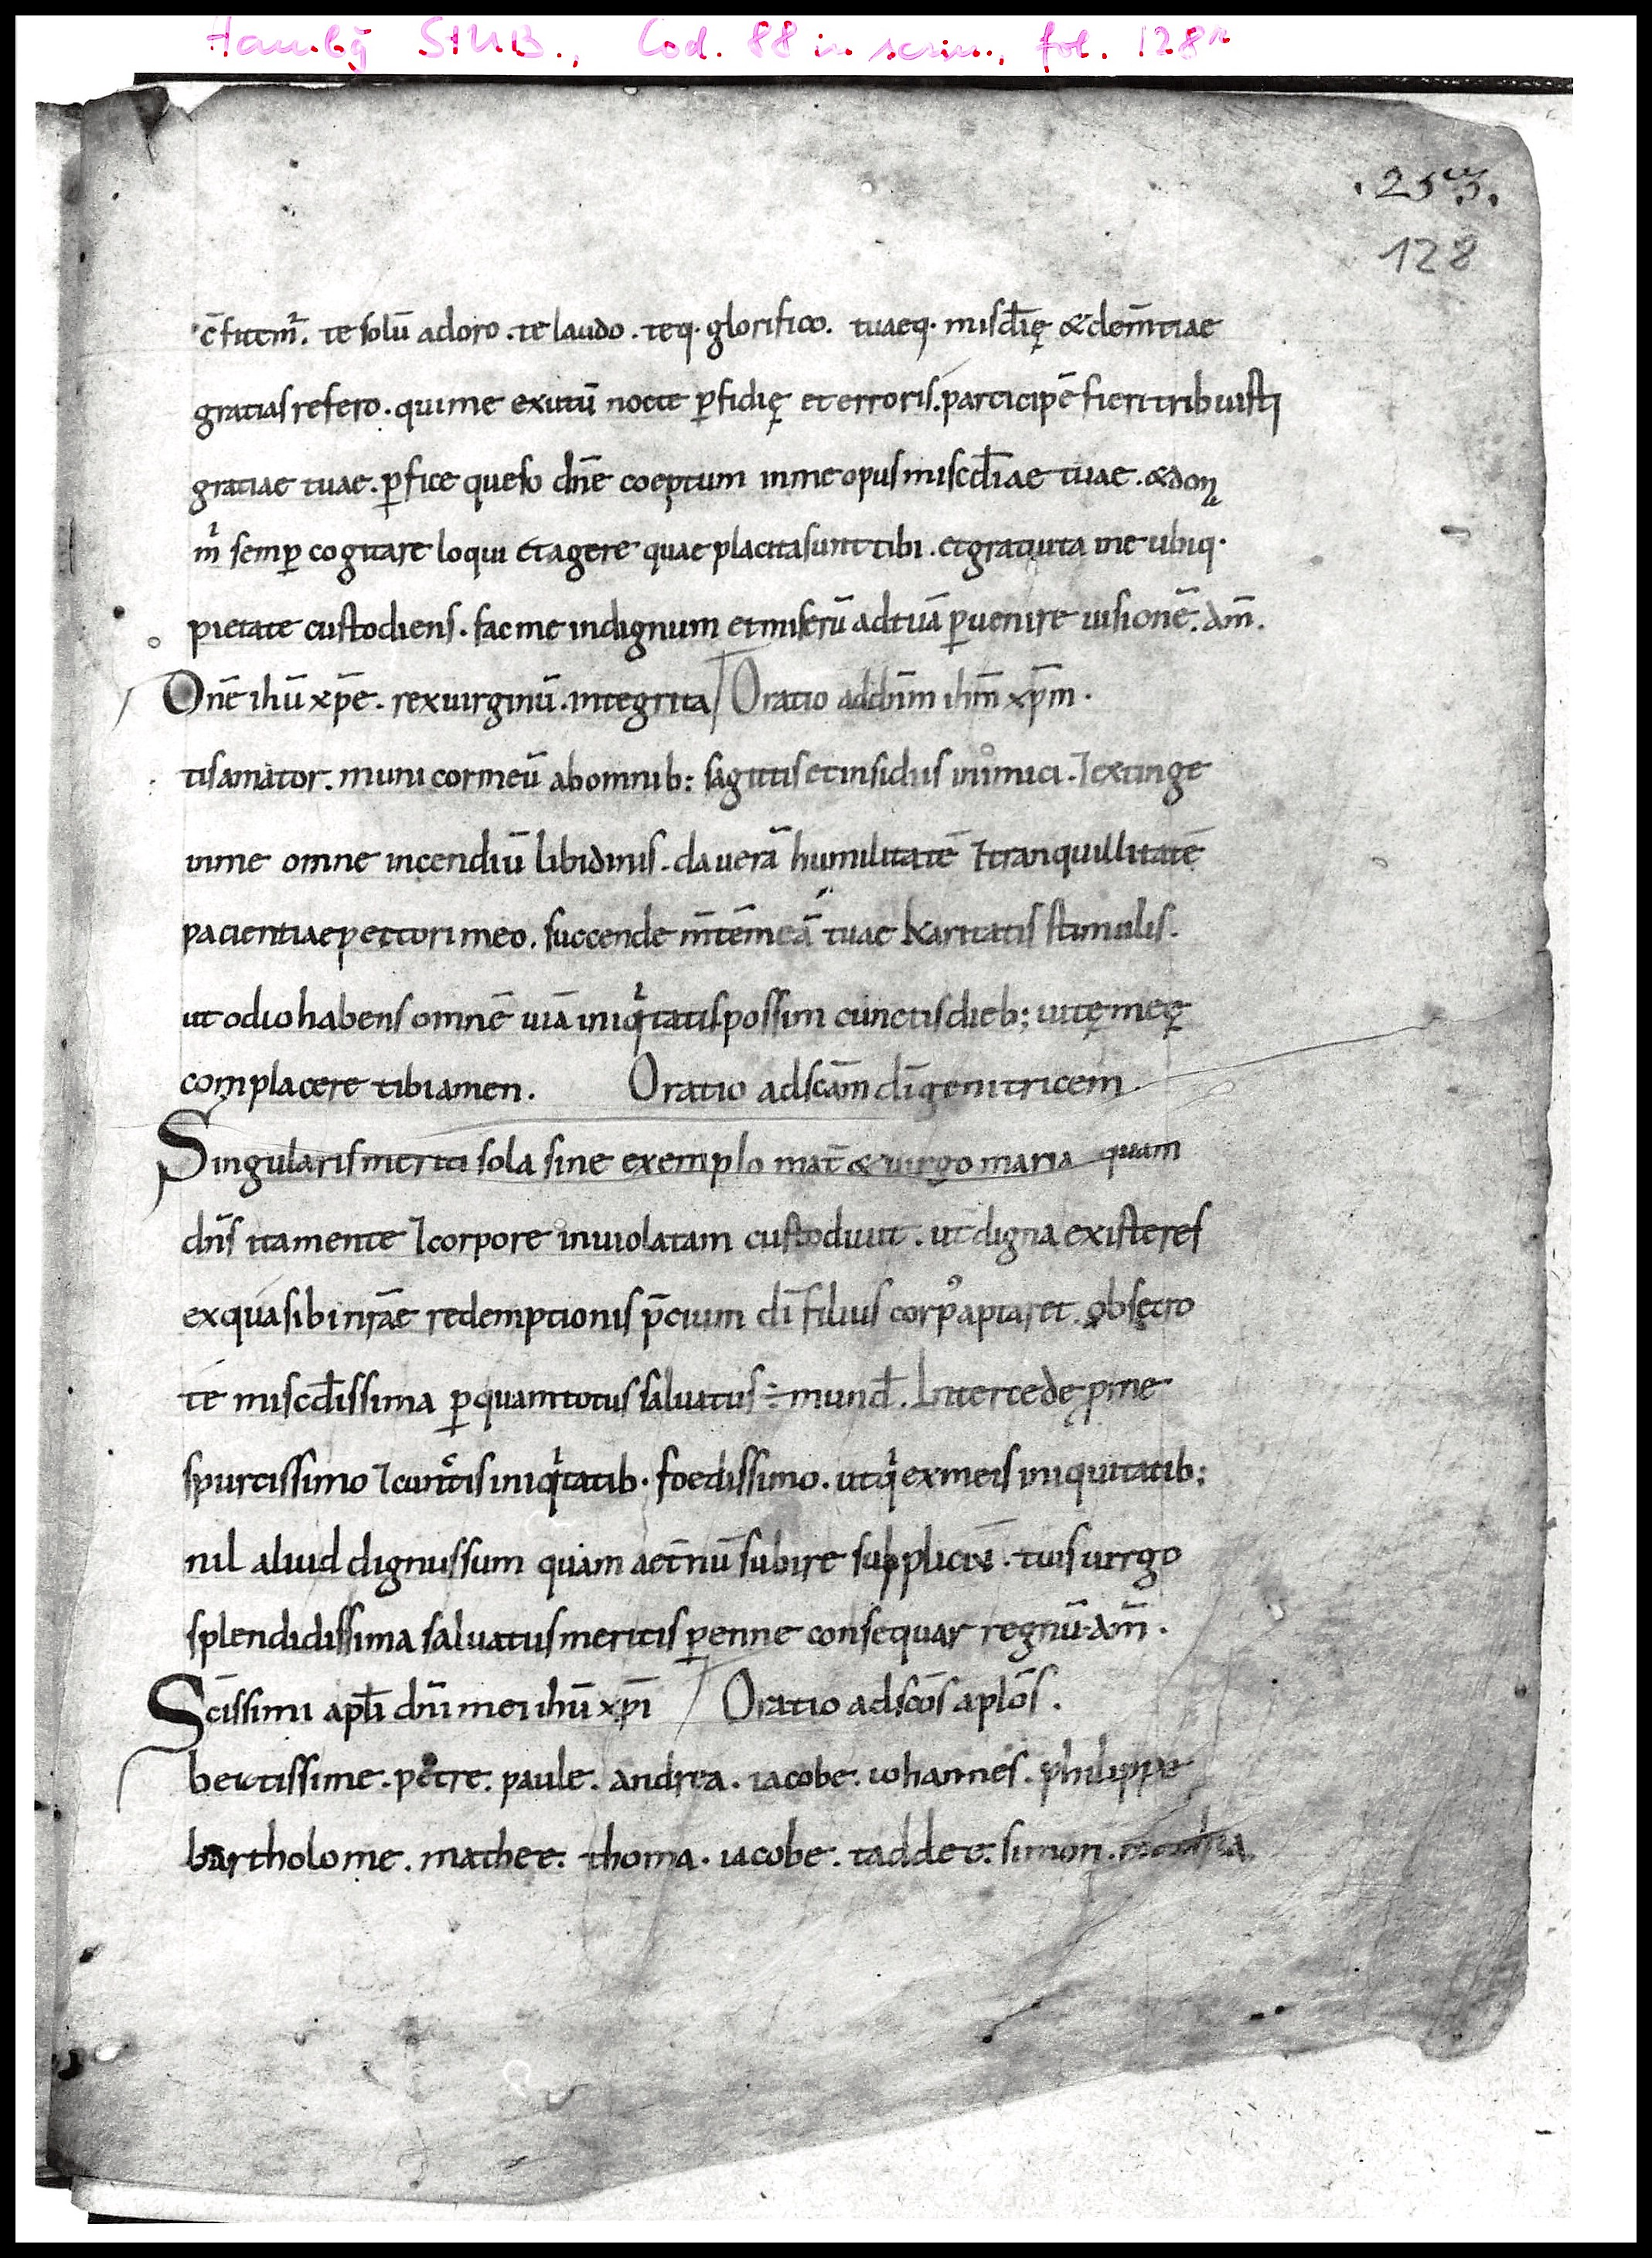 Hamb͞g StUB., Cod. 88 in scrin., fol. 128r
.253.
128
c̄fitem͛. te solū adoro. te laudo. teq· glorifico. tuaeq· misd̄ię & clem̄tiae
gratias refero. qui me exutū nocte ꝑfidię et erroris. participē fieri tribuisti
gratiae tuae. ꝑfice queso dn̄e coeptum in me opus miscd̄iae tuae. & don
mⁱ semꝑ cogitare loqui et agere quae placita sunt tibi. et gratuita me ubiq·
pietate custodiens. fac me indignum et miserū ad tuā ꝑuenire uisionē. Am̄.
Dn̄e ihū xp̄e. rex uirginū. integrita/ Oratio ad dn̄m ihm̄ xp̄m.
tis amator. muni cor meū ab omnib: sagittis et insidiis inimici. ⁊ extinge
in me omne incendiū libidinis. da uerā humilitatē ⁊ tranquillitatē
pacientiae pectori meo. succende m̄tē meā tuae karitatis stimulis.
ut odio habens omnē uiā iniqⁱtatis possim cunctis dieb; uitę meę
complacere tibi amen. Oratio ad scām dī genitricem.
Singularis meriti sola sine exemplo mat̄ & uirgo maria quam
dn̄s ita mente ⁊ corpore inuiolatam custodiuit. ut digna existeres
ex qua sibi nr̄ae redemptionis p̄cium dī filius corꝑ aptaret. obsecro
te miscd̄issima ꝑ quam totus saluatus ÷ mund̄. Intercede ꝓ me
spurcissimo ⁊ cunctis iniqⁱtatib· foedissimo. ut qⁱ ex meis iniquitatib;
nil aliud dignus sum quam aet̄nū subire suppliciū. tuis uirgo
splendidissima saluatus meritis ꝑenne consequar regnū. Am̄.
Scīssimi apłi dn̄i mei ihū xp̄i / Oratio ad scōs aplōs.
beatissime. petre. paule. andrea. iacobe. iohannes. philippe
bartholome. mathee. thoma. iacobe. taddee. simon.